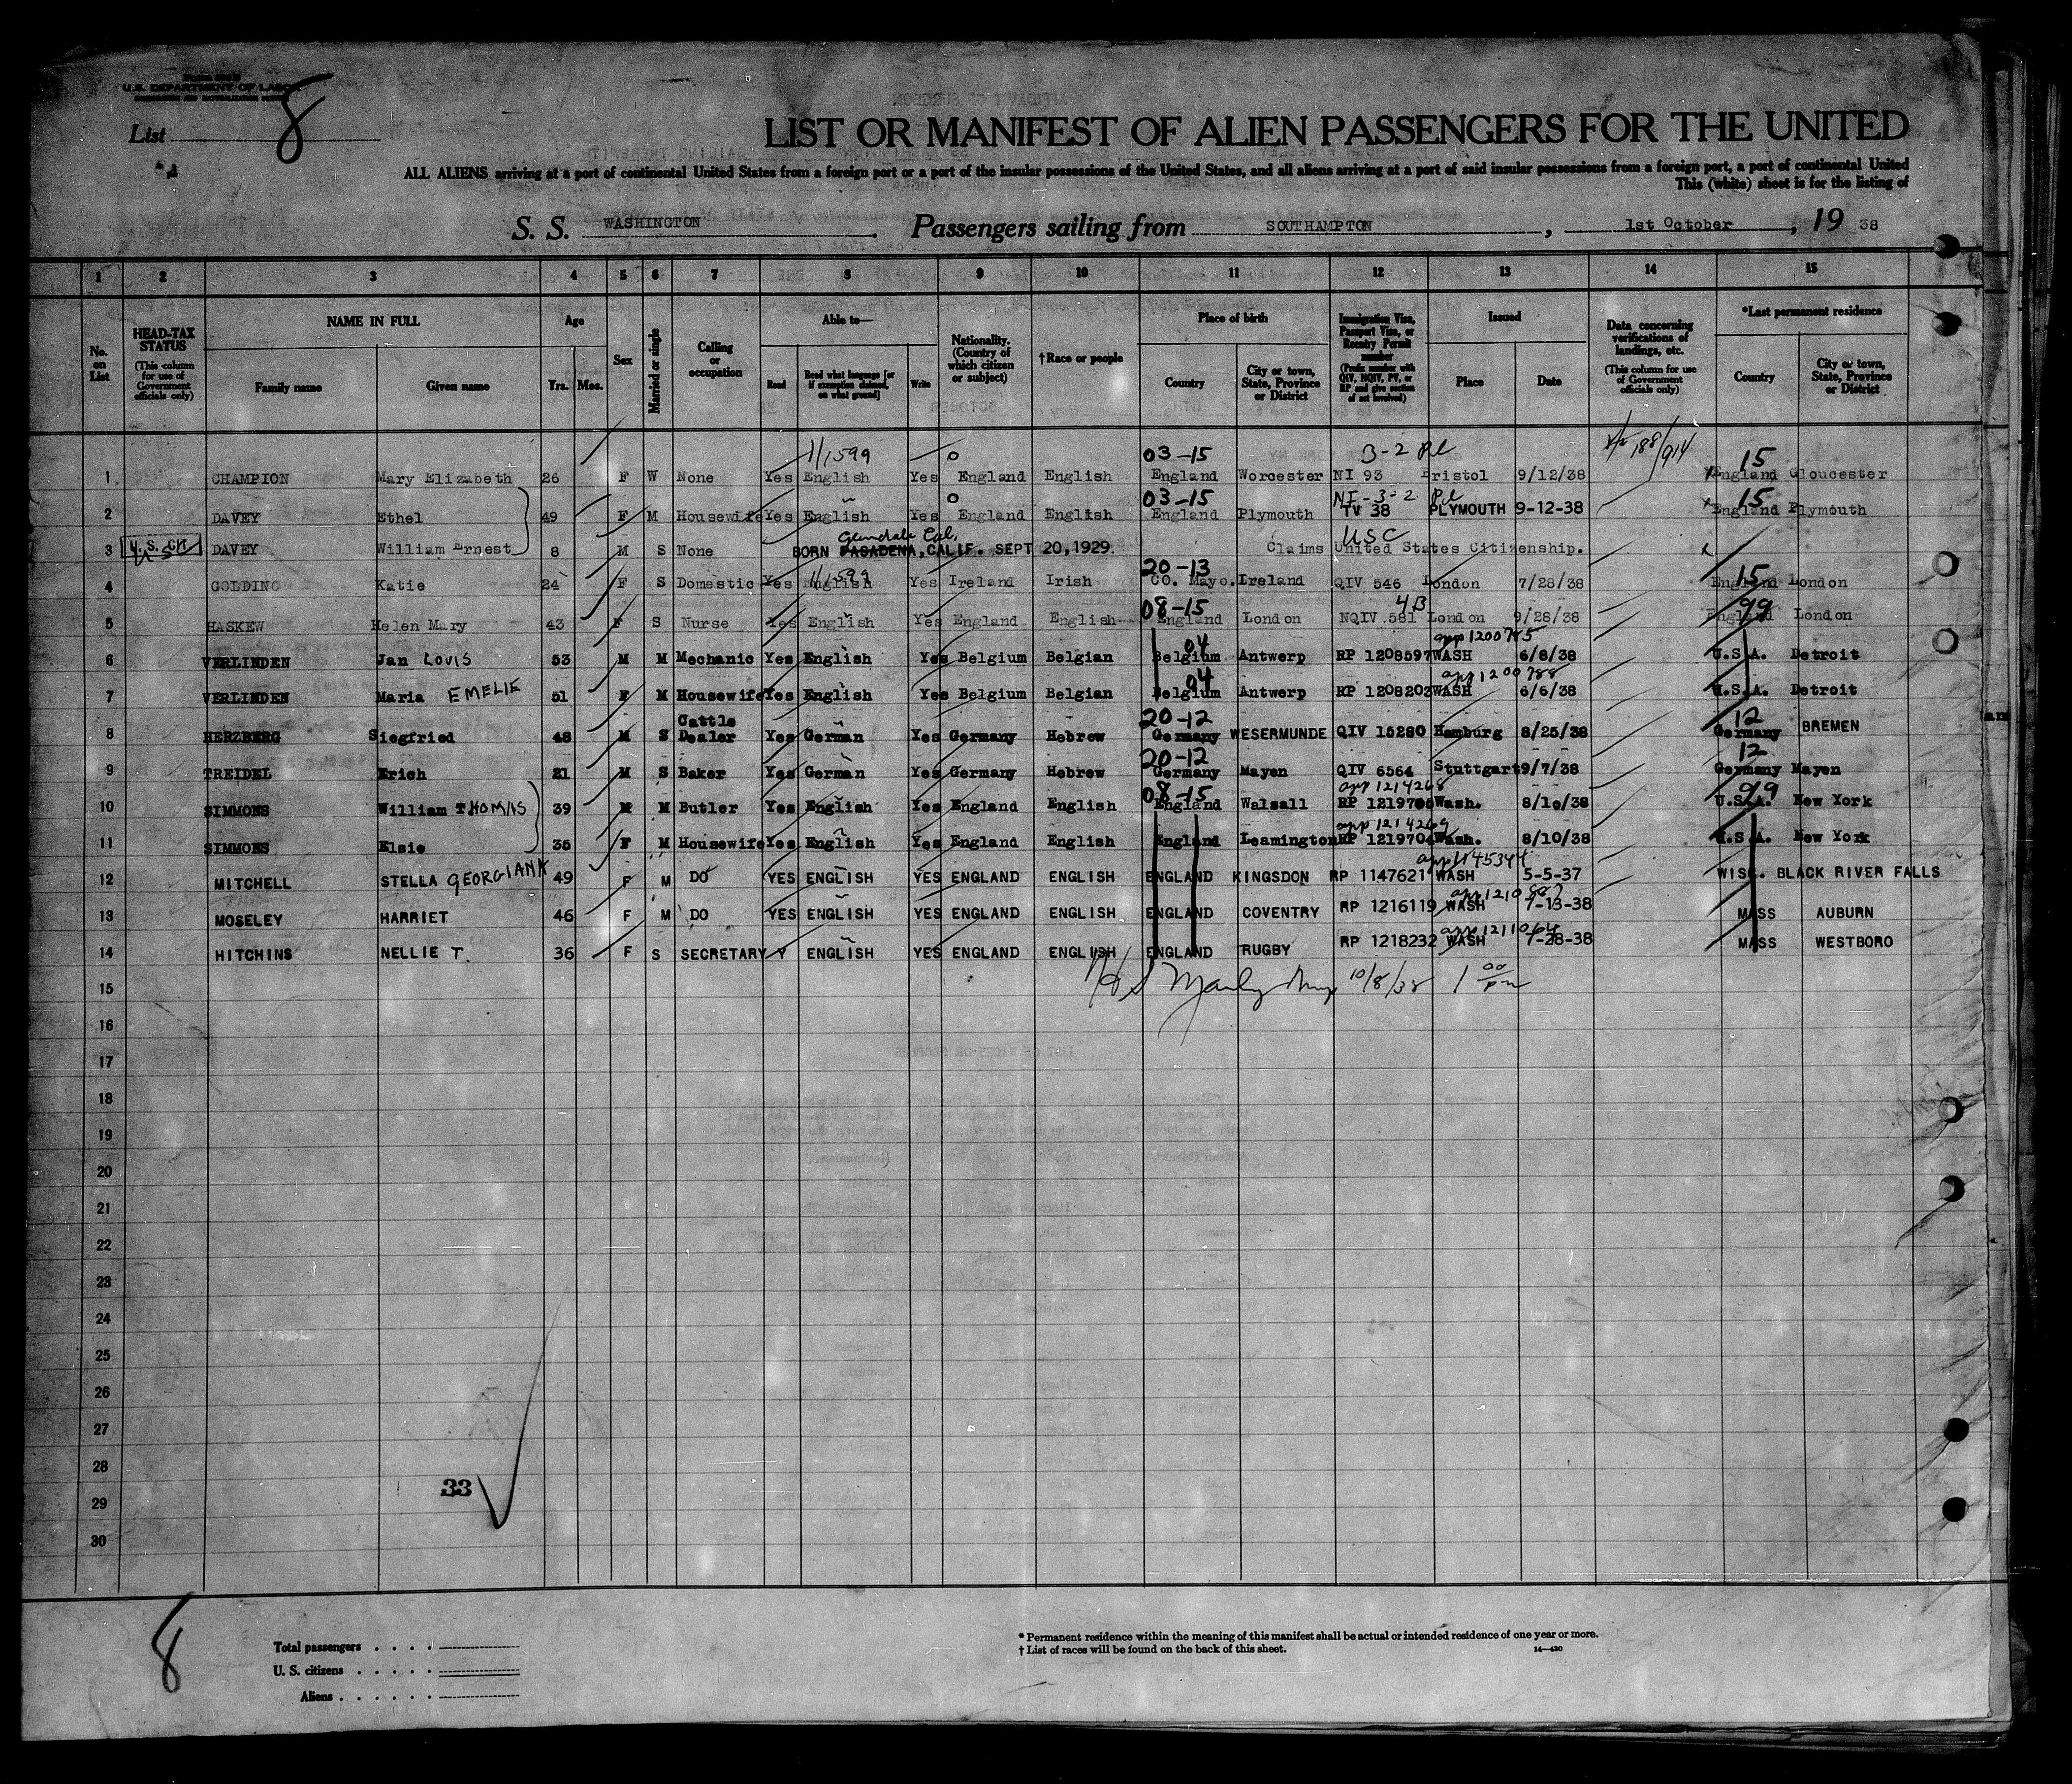 U.S. DEPARTMENT OF LABOR
List 8
LIST OR MANIFEST OF ALIEN PASSENGERS FOR THE UNITED
ALL ALIENS arriving at a port of continental United States from a foreign port or a port of the insular possessions of the United States, and all aliens arriving at a port of said insular possessions from a foreign port, a port of continental United
This (white) sheet is for the listing of
S. S. WASHINGTON. Passengers sailing from SOUTHAMPTON, 1st October, 19 38
1 2 3 4 5 6 7 8 9 10 11 12 13 14 15
No. on List
HEAD-TAX STATUS (This column for use of Government officials only)
NAME IN FULL
Family name Given name
Age
Yrs. Mos.
Sex
Married or single
Calling or occupation
Able to—
Read Read what language [or if exemption claimed, on what ground] Write
Nationality. (Country of which citizen or subject)
†Race or people
Place of birth
Country City or town, State, Province or District
Immigration Visa, Passport Visa, or Reentry Permit number (Prefix number with QIV, NQIV, PV, or RP and give section of act involved)
Issued
Place Date
Data concerning verifications of landings, etc. (This column for use of Government officials only)
*Last permanent residence
Country City or town, State, Province or District
1/1599 0 03-15 3-2 188/914 15
1 CHAMPION Mary Elizabeth 26 F W None Yes English Yes England English England Worcester NI 93 Bristol 9/12/38 England Gloucester
0 03-15 NI-3-2 15
2 DAVEY Ethel 49 F M Housewife Yes English Yes England English England Plymouth TV 38 PLYMOUTH 9-12-38 England Plymouth
Glendale Cal. USC
3 U.S. CIT DAVEY William Ernest 8 M S None BORN PASADENA, CALIF. SEPT 20,1929. Claims United States Citizenship.
1/1599 20-13 15
4 GOLDING Katie 24 F S Domestic Yes English Yes Ireland Irish CO. Mayo. Ireland QIV 546 London 7/28/38 England London
08-15 4B 99
5 HASKEW Helen Mary 43 F S Nurse Yes English Yes England English England London NQIV 581 London 9/28/38 England London
04 app 1200785
6 VERLINDEN Jan LOUIS 53 M M Mechanic Yes English Yes Belgium Belgian Belgium Antwerp RP 1208597 WASH 6/8/38 U.S.A. Detroit
04 app 1200788
7 VERLINDEN Maria EMELIE 51 F M Housewife Yes English Yes Belgium Belgian Belgium Antwerp RP 1208203 WASH 6/6/38 U.S.A. Detroit
20-12 12
8 HERZBERG Siegfried 48 M S Cattle Dealer Yes German Yes Germany Hebrew Germany WESERMUNDE QIV 15280 Hamburg 8/25/38 Germany BREMEN
20-12 12
9 TREIDEL Erich 21 M S Baker Yes German Yes Germany Hebrew Germany Mayen QIV 6564 Stuttgart 9/7/38 Germany Mayen
08-15 app 1214268 99
10 SIMMONS William THOMAS 39 M M Butler Yes English Yes England English England Walsall RP 1219705 Wash. 8/10/38 U.S.A. New York
app 1214269
11 SIMMONS Elsie 35 F M Housewife Yes English Yes England English England Leamington RP 1219704 Wash. 8/10/38 U.S.A. New York
app 1145344
12 MITCHELL STELLA GEORGIANA 49 F M DO YES ENGLISH YES ENGLAND ENGLISH ENGLAND KINGSDON RP 1147621 WASH 5-5-37 WISC. BLACK RIVER FALLS
app 1210887
13 MOSELEY HARRIET 46 F M DO YES ENGLISH YES ENGLAND ENGLISH ENGLAND COVENTRY RP 1216119 WASH 7-13-38 MASS AUBURN
app 1211064
14 HITCHINS NELLIE T. 36 F S SECRETARY Y ENGLISH YES ENGLAND ENGLISH ENGLAND RUGBY RP 1218232 WASH 7-28-38 MASS WESTBORO
15 10/8/38 1 00 pm
16
17
18
19
20
21
22
23
24
25
26
27
28
29
30
33
8
Total passengers
U. S. citizens
Aliens
* Permanent residence within the meaning of this manifest shall be actual or intended residence of one year or more.
† List of races will be found on the back of this sheet.
14—430